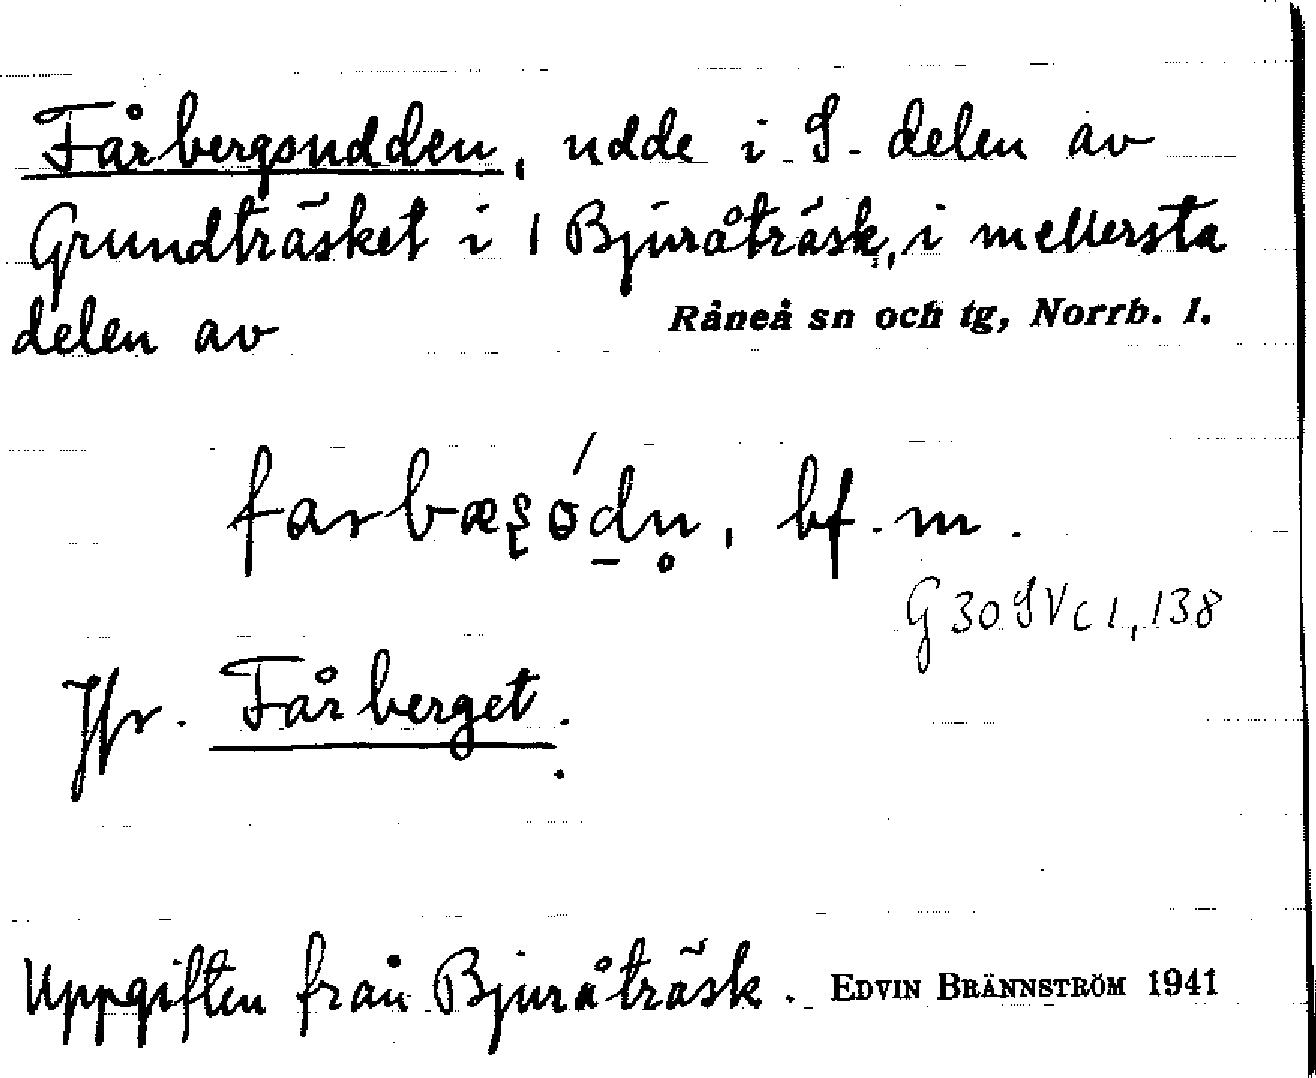 Fårbergsudden, udde i S. delen av
Grundträsket i 1 Bjuråträsk, i mellersta
delen av Råneå sn och tg, Norrb. l.
farbæʂódn̥, bf. m.
G 30 SV c 1, 138
Jfr. Fårberget.
Uppgiften från Bjuråträsk. EDVIN BRÄNNSTRÖM 1941